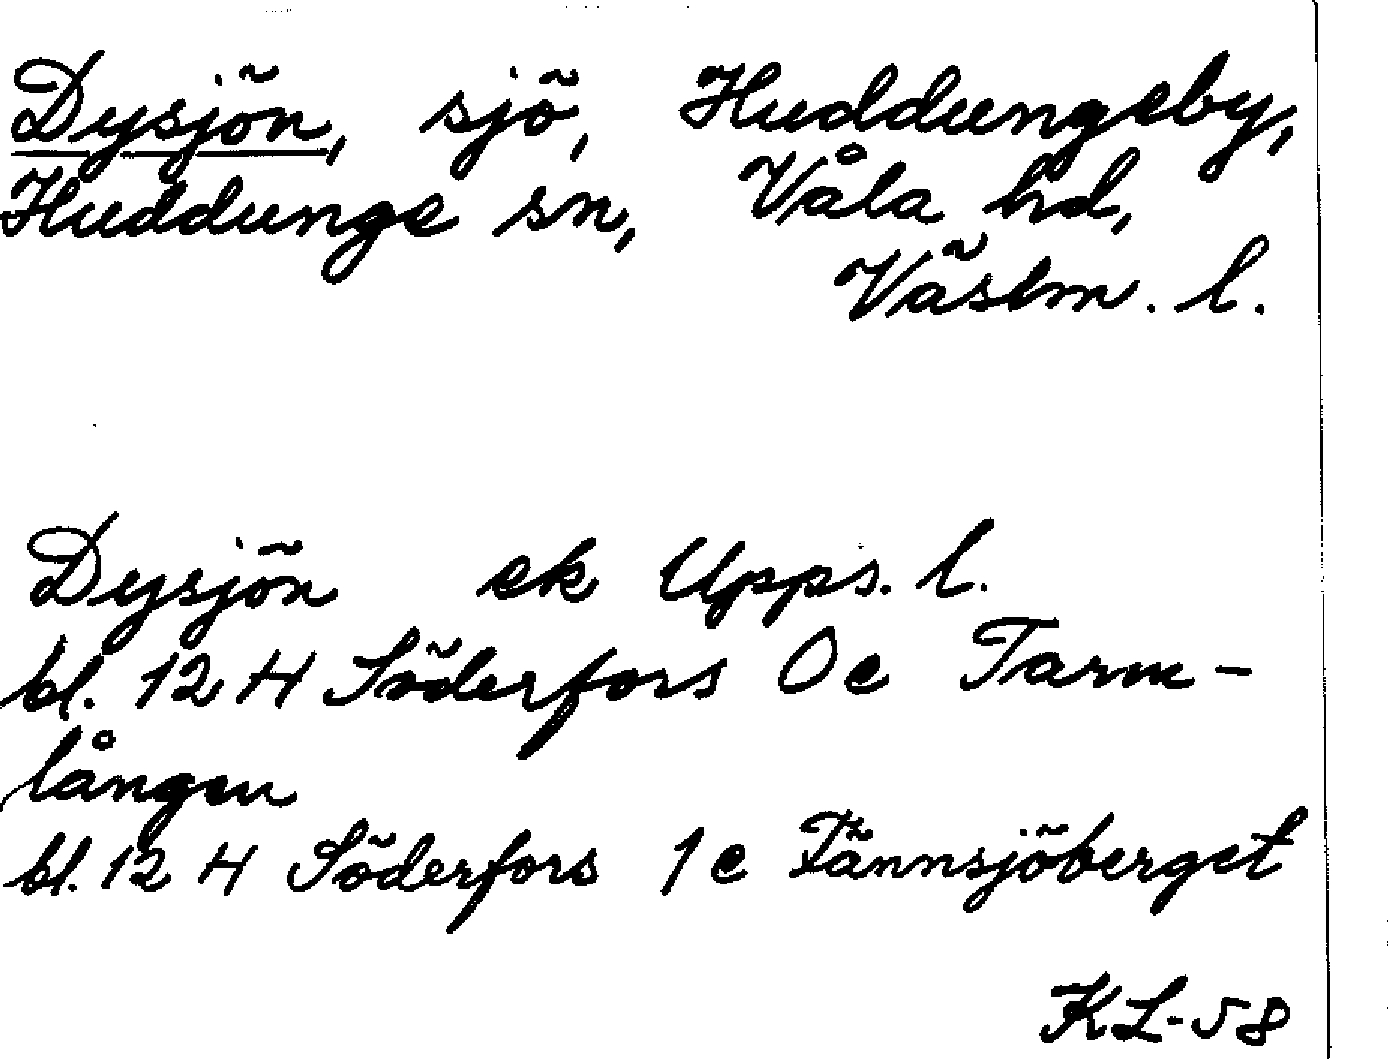 Dysjön, sjö, Huddungeby,
Huddunge sn, Våla hd,
Västm. l.
Dysjön ek Upps. l.
bl. 12 H Söderfors 0 e Tarm-
lången
bl. 12 H Söderfors 1 e Tännsjöberget
KL-58